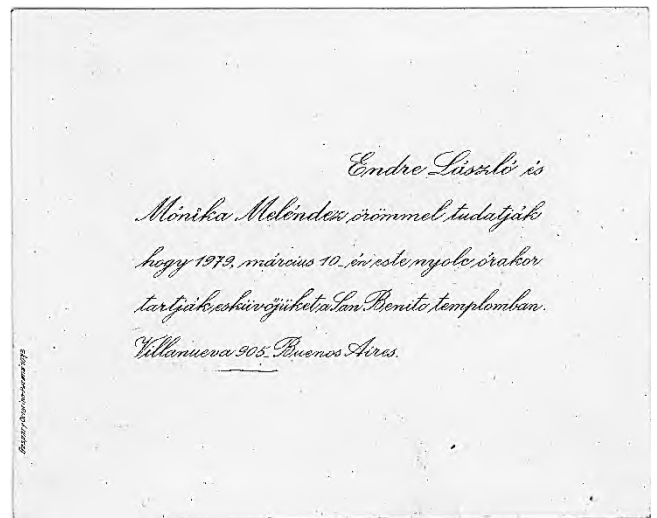 Endre László és
Mónika Meléndez örömmel tudatják
hogy 1979. március 10-én este nyolc órakor
tartják esküvőjüket a San Benito templomban.
Villanueva 905. Buenos Aires.